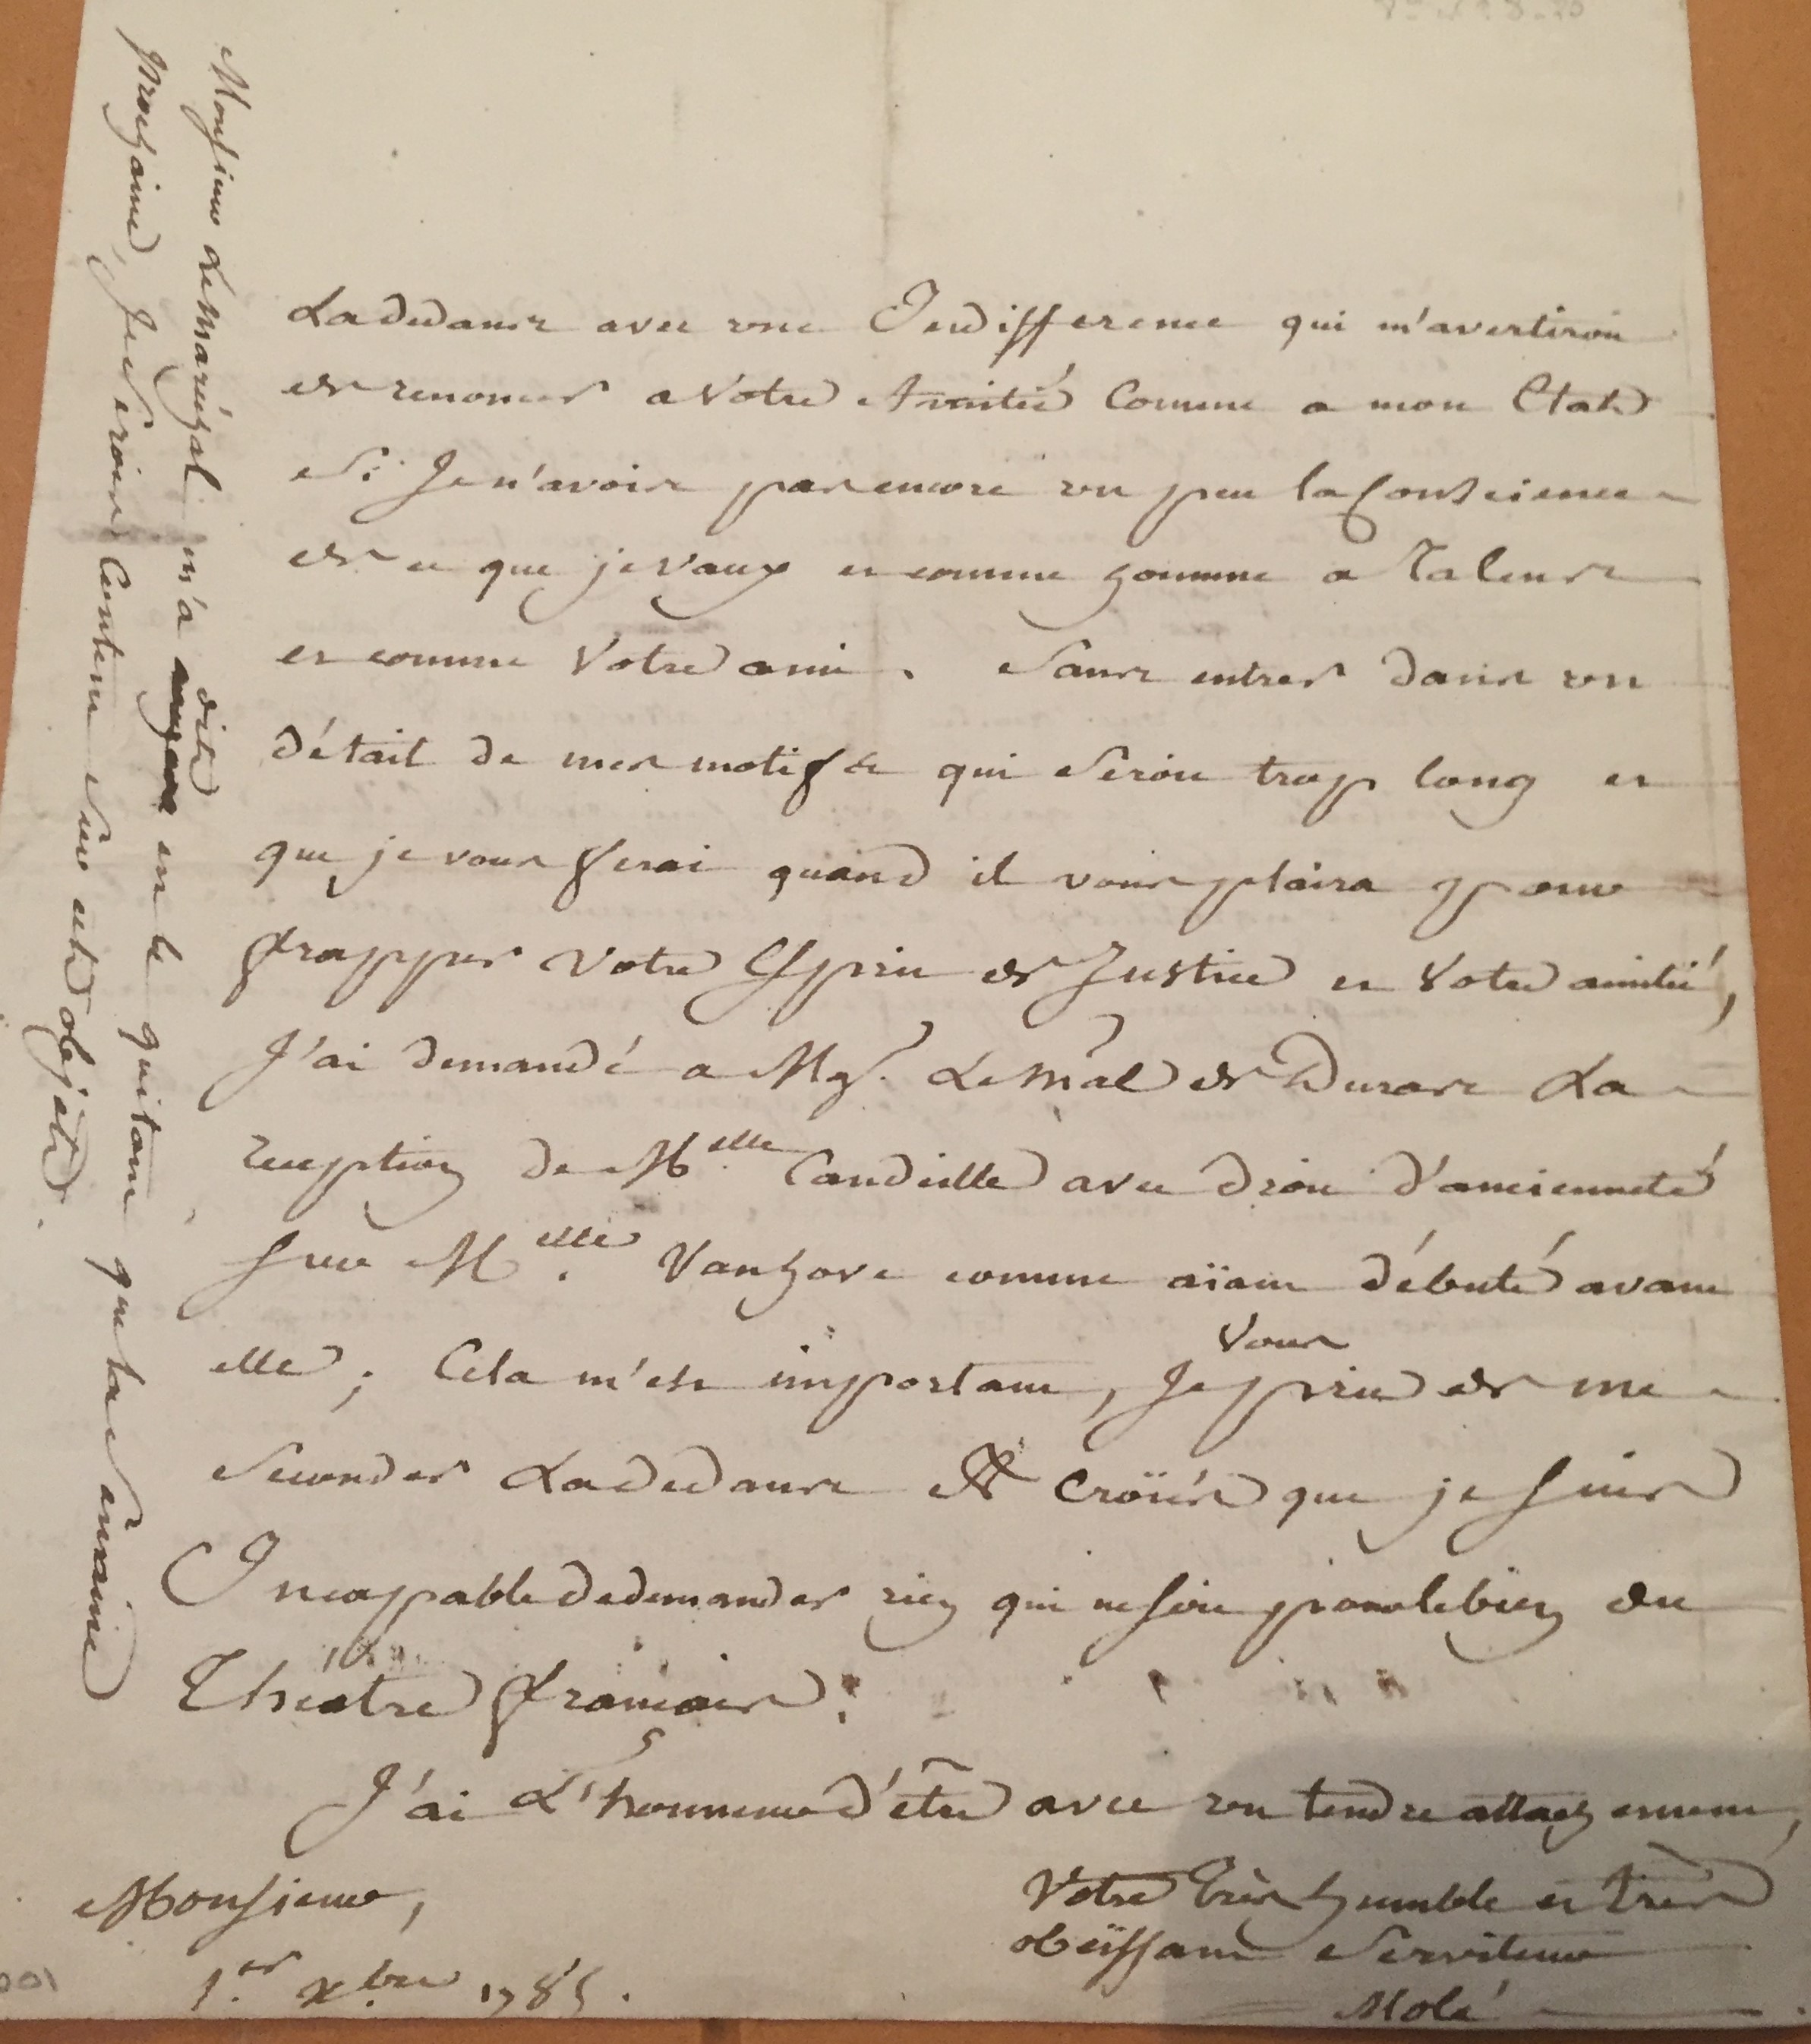 La dedans avec une Indifference qui m'avertiroit
de renoncer a Votre Amitié Comme a mon Etat
Si Je n'avois pas encore un peu la Conscience
de ce que je Vaux et comme homme a Talens
et comme Votre ami. Sans entrer dans un
détail de mes motifs qui Seroit trop long et
que je vous ferai quand il vous plaira pour
frapper Votre Esprit de Justice et Votre amitié,
J'ai demandé a Mgr. Le Mal de Duras La
reception de Melle Candeille avec droit d'ancienneté
sur Melle. Vanhove comme aïant débuté avant
elle; Cela m'est important, Je Vous prie de me
Seconder La dedans Et croïés que je suis
Incapable de demander rien qui ne soit pour le bien du
Théatre françois.
J'ai L'honneur d'être avec un tendre attachement,
Monsieur,
Votre très humble et très
obéissant Serviteur
Molé
1.er Xbre 1785.
Monsieur Le Maréchal m'a dit en le quitant que la Semaine
prochaine Je Serois Content Sur cet objet.